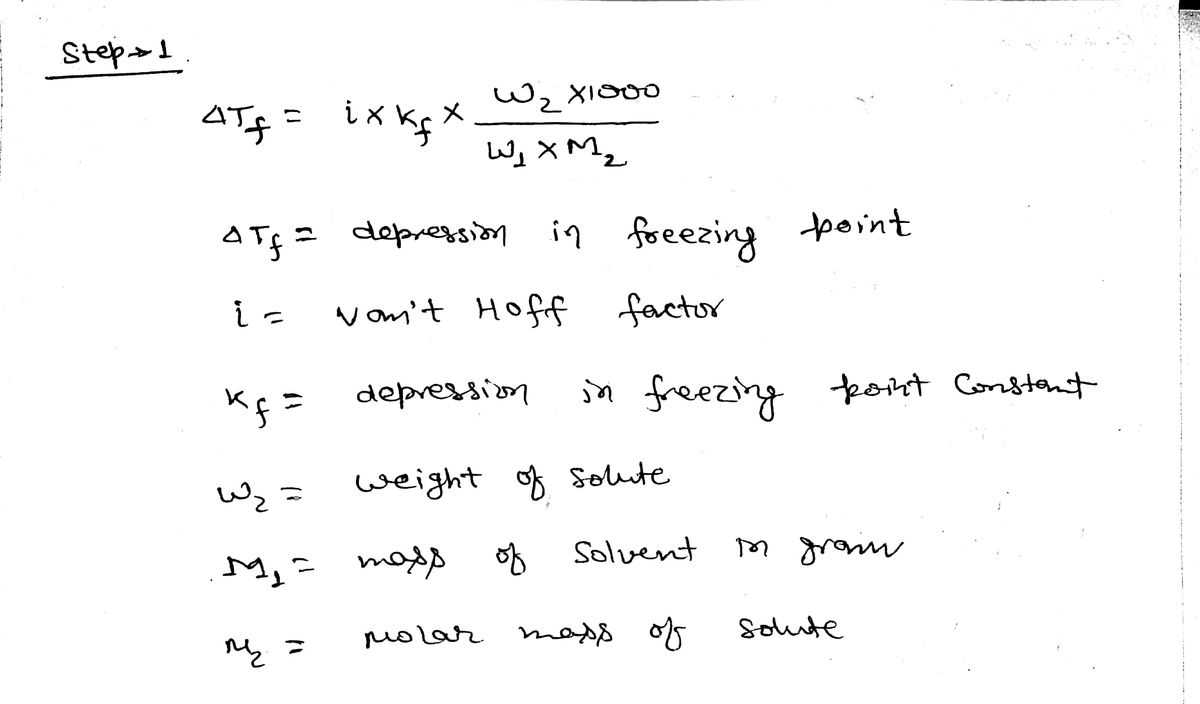 Step→1
ΔTf = i × Kf × (W₂ × 1000) / (W₁ × M₂)
ΔTf = depression in freezing point
i = Van't Hoff factor
Kf = depression in freezing point Constant
W₂ = weight of solute
M₁ = mass of Solvent in gram
M₂ = Molar mass of solute